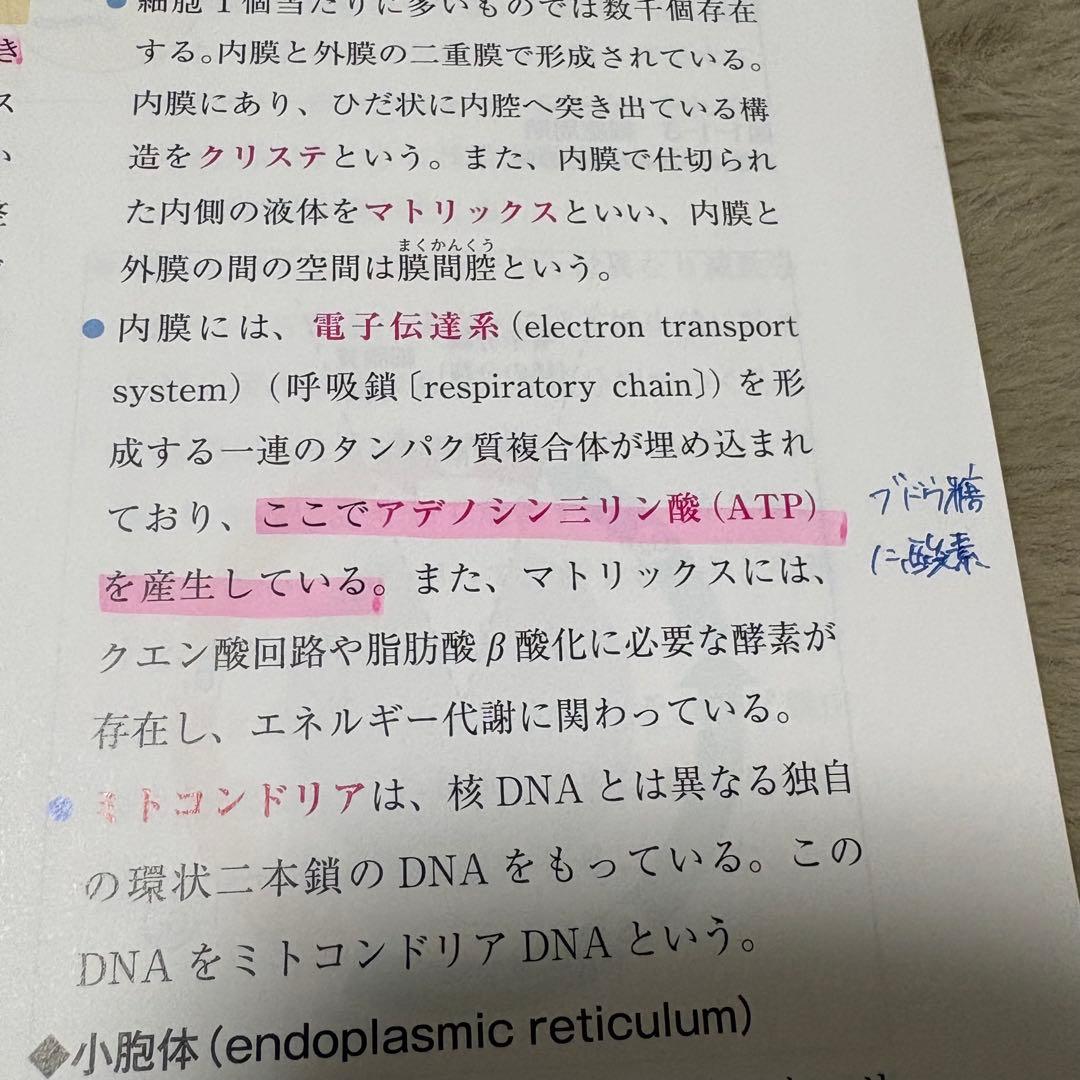 細胞1個当たりに多いものでは数千個存在
する。内膜と外膜の二重膜で形成されている。
内膜にあり、ひだ状に内腔へ突き出ている構
造をクリステという。また、内膜で仕切られ
た内側の液体をマトリックスといい、内膜と
まくかんくう
外膜の間の空間は膜間腔という。
● 内膜には、電子伝達系（electron transport
system）（呼吸鎖〔respiratory chain〕）を形
成する一連のタンパク質複合体が埋め込まれ
ており、ここでアデノシン三リン酸（ATP）
を産生している。また、マトリックスには、
クエン酸回路や脂肪酸β酸化に必要な酵素が
存在し、エネルギー代謝に関わっている。
● ミトコンドリアは、核DNAとは異なる独自
の環状二本鎖のDNAをもっている。この
DNAをミトコンドリアDNAという。
◆小胞体（endoplasmic reticulum）
ブドウ糖
に酸素